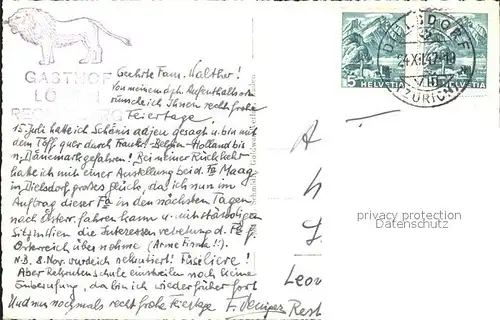 GASTHOF
Geehrte Fam. Walther!
Von meinem Aufenthaltsort
wünsche ich Ihnen recht frohe
Feiertage.
15. Juli hatte ich Schönis adjeu gesagt u. bin mit
dem Töff quer durch Frankr. Belgien-Holland bis
n. Dänemark gefahren! Bei meiner Rückkehr
hatte ich mit einer Anstellung bei d. Fa Maag
in Dielsdorf grosses Glück, da ich nun im
Auftrag dieser Fa in den nächsten Tagen
nach Österr. fahren kann u. mit ständigem
Sitz in Wien die Interessenvertretung d. Fa f.
Österreich übernehme (Arme Firma!!).
N.B. 8. Nov. wurde ich rekrutiert! Füseliere!
Aber Rekrutenschule einstweilen noch keine
Einberufung, da bin ich wieder früher fort
Und nun nochmals recht frohe Festtage F.
DIELSDORF
24.XII.47-10
(ZÜRICH)
5 HELVETIA
HELVETIA
A
L
Leon
Rest
privacy protection
Datenschutz